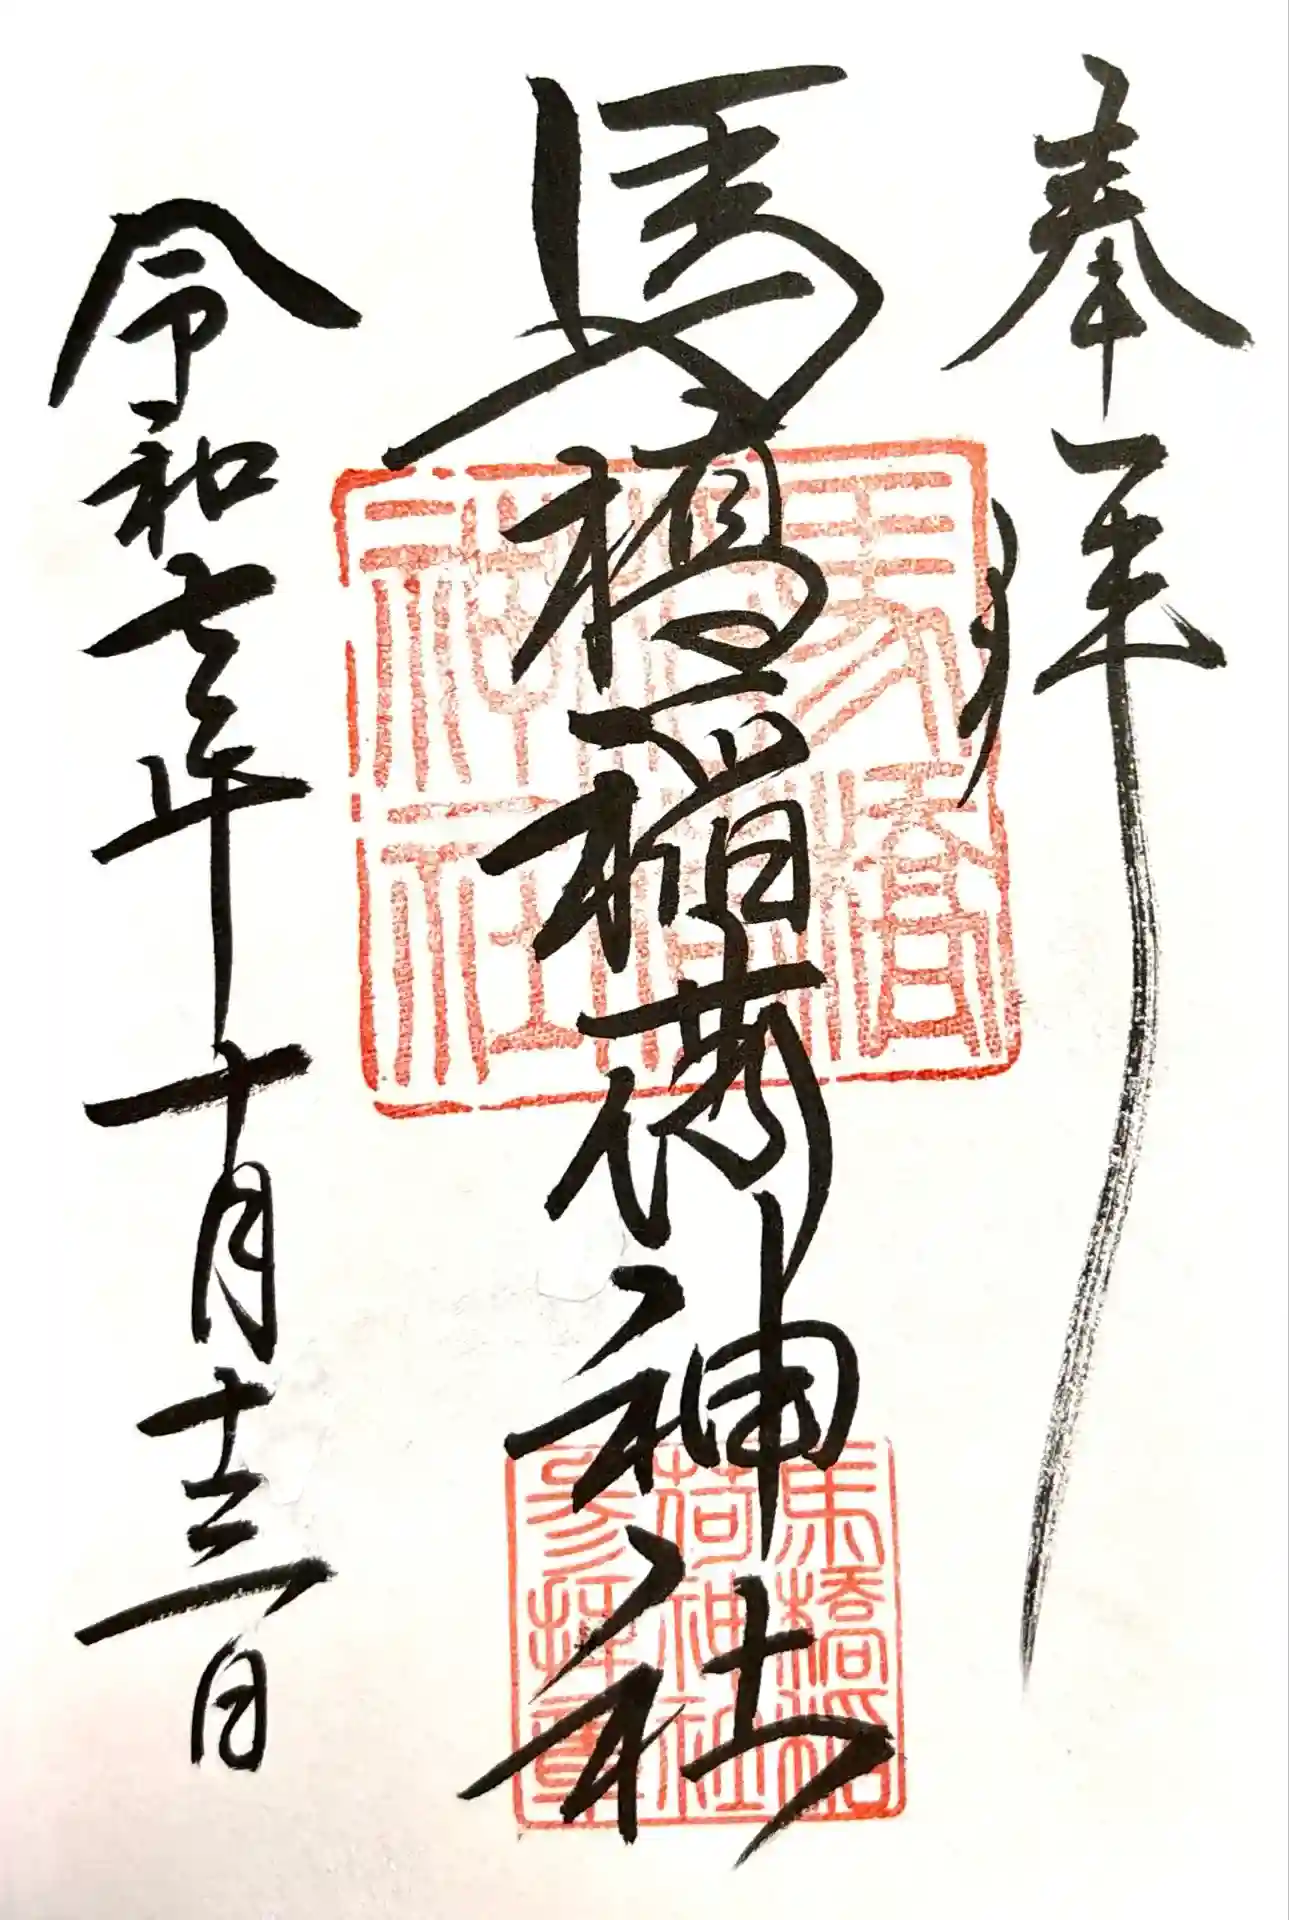 奉拝
馬橋稲荷神社
令和七年十月十三日
馬橋
神社
馬橋稲
荷神社
参拝章